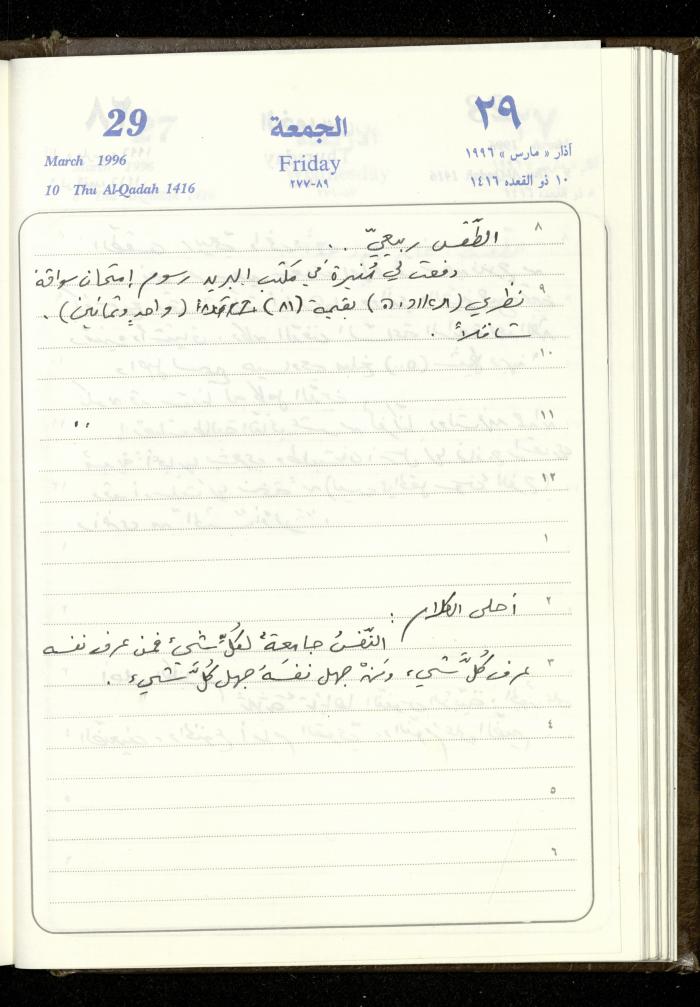 29
الجمعة
٢٩
March 1996
Friday
آذار « مارس » ١٩٩٦
10 Thu Al-Qadah 1416
٢٧٧-٨٩
١٠ ذو القعده ١٤١٦
٨
الطَّقس ربيعيّ . .
دفعت لي مُنيرة في مكتب البريد رسوم إمتحان سواقة
٩
نظري بقيمة (٨١) (واحدٍ وثمانين) .
شاقلاً .
١٠
١١
١٢
١
٢
أحلى الكلام :
النَّفسُ جامعةٌ لكُلِّ شيء فمن عرف نفسه
٣
عرف كُلَّ شيء، ومَنْ جهل نفسَهُ جهل كُلَّ شيء .
٤
٥
٦